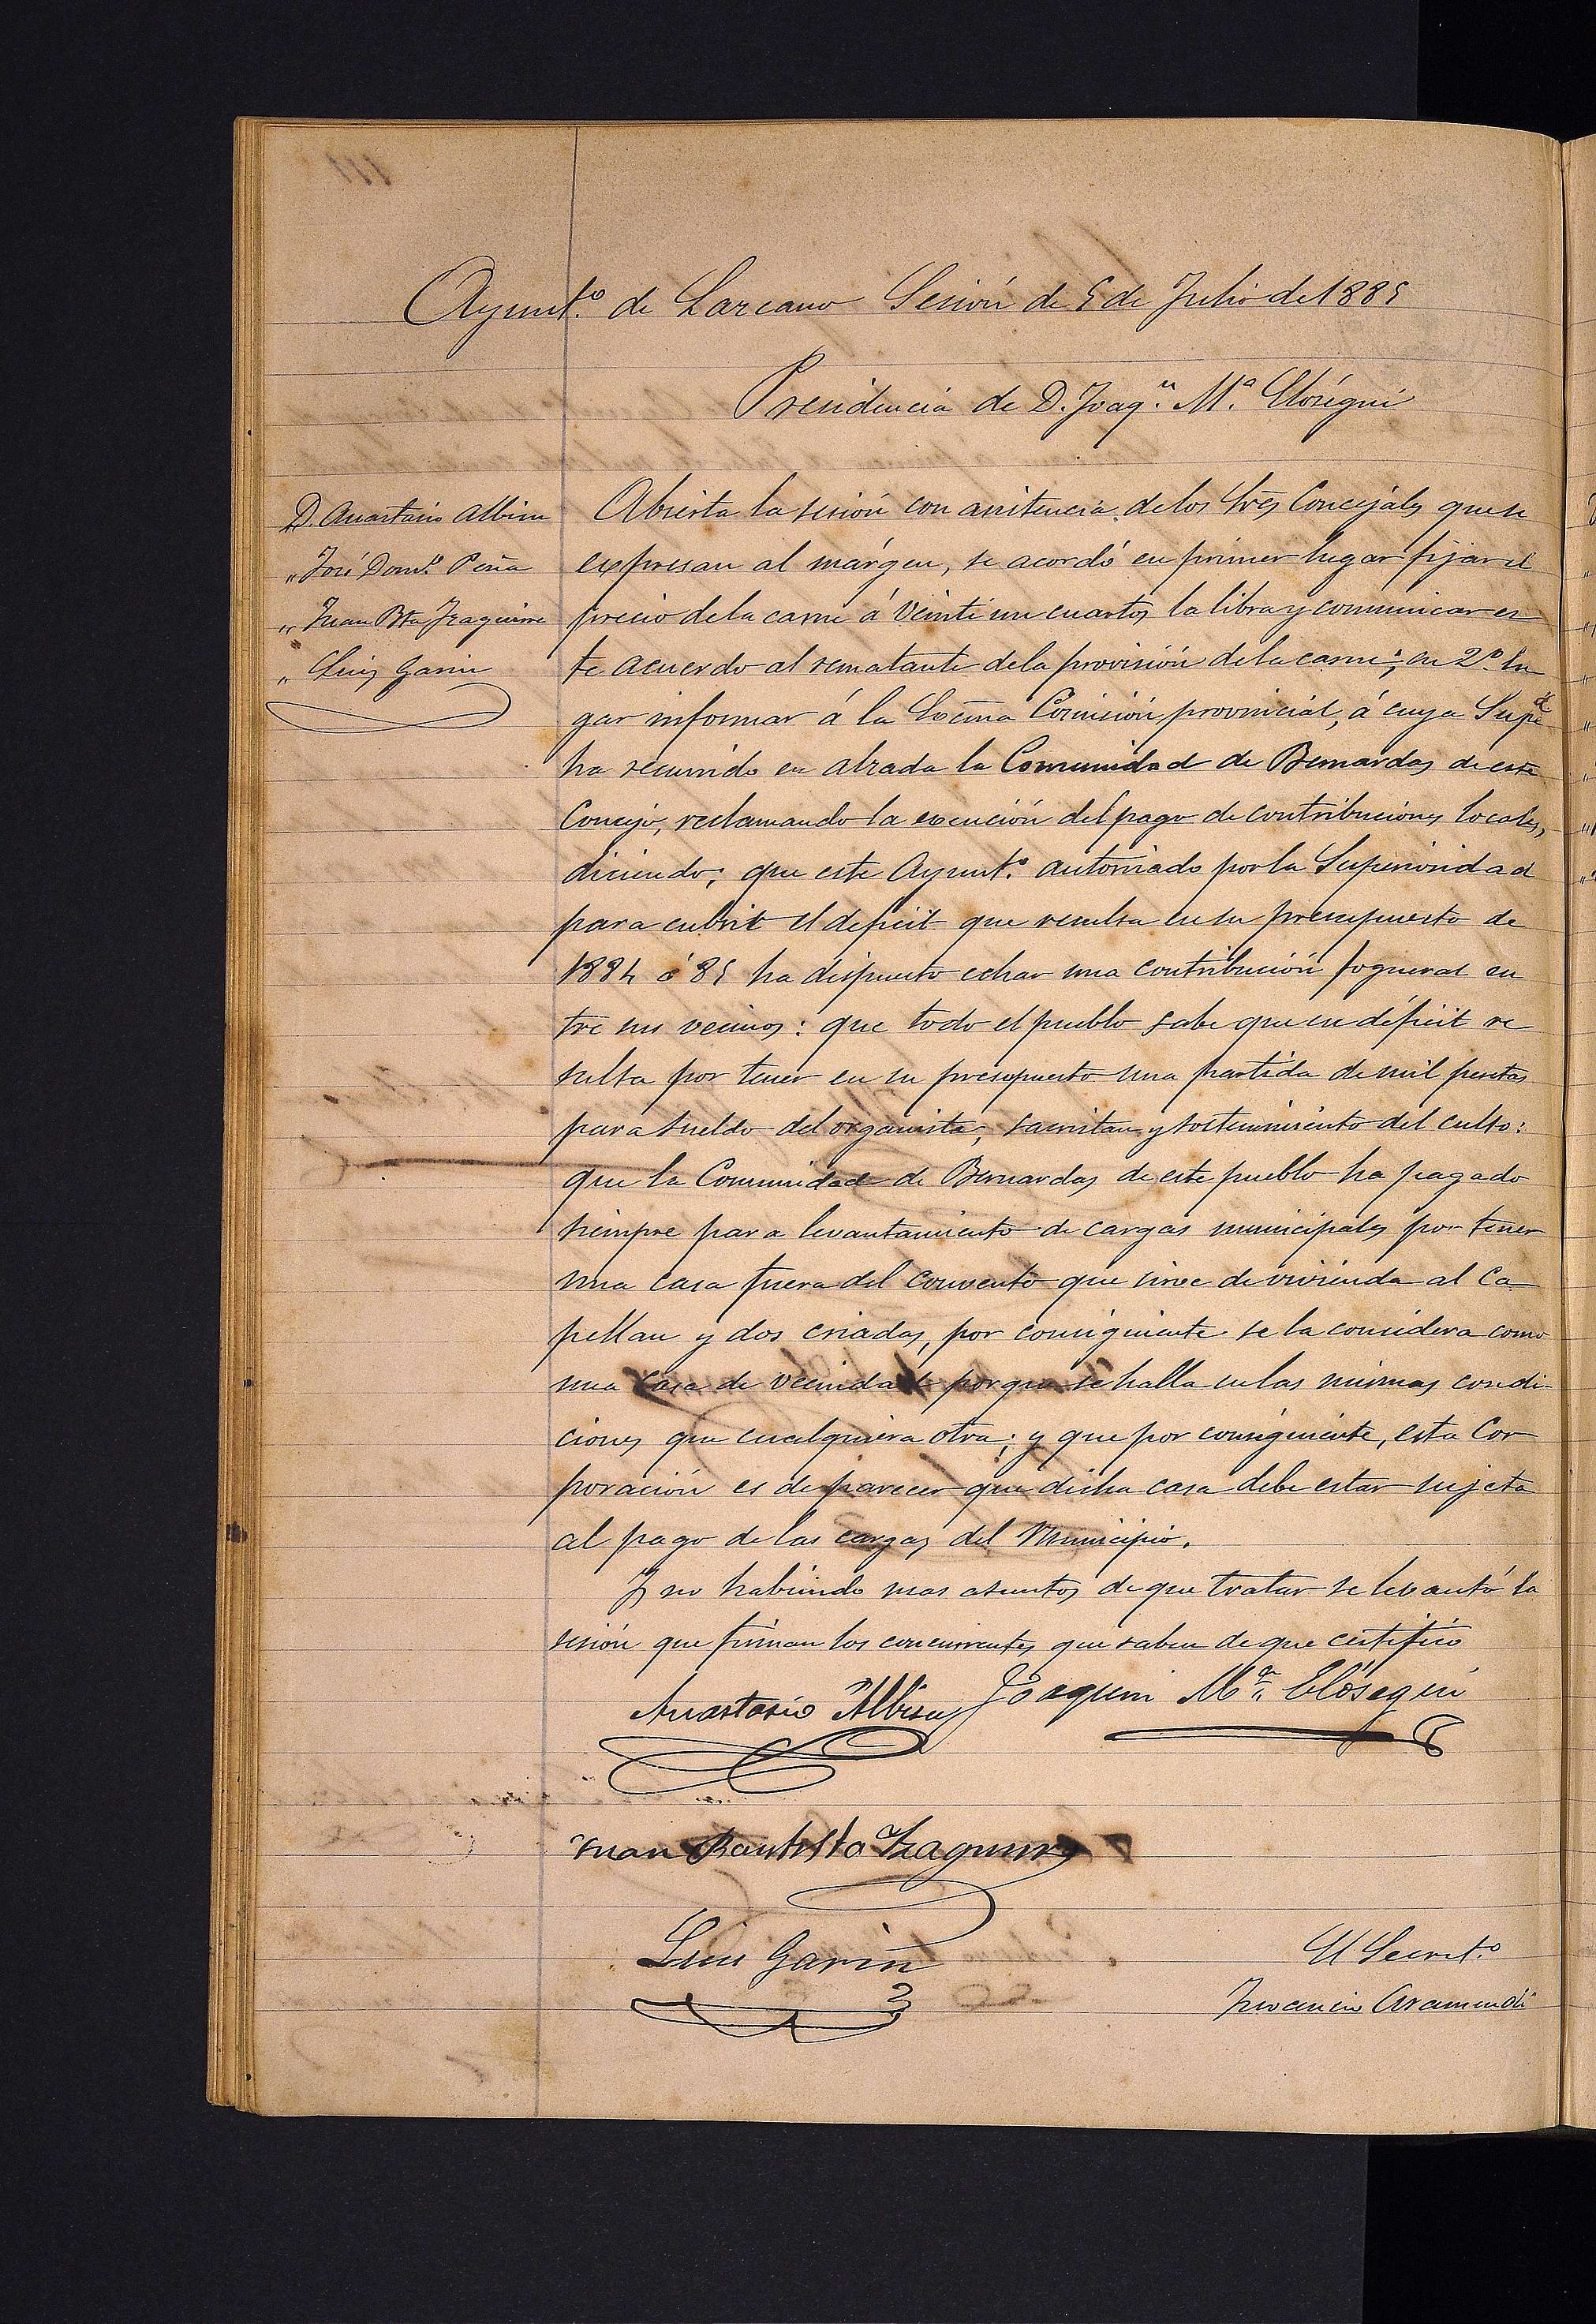 Ayunt.º de Lazcano Sesión de 5 de Julio de 1885
Presidencia de D. Joaq.n M.ª Elósegui
D. Anastasio Albisu
" José Dom.º Peña
" Juan Bta Izaguirre
" Luis Garin
Abierta la sesión con asistencia de los Sres Concejales que se
expresan al márgen, se acordó en primer lugar fijar el
precio de la carne á veinte un cuartos la libra y comunicar es
te acuerdo al rematante de la provisión de la carne; en 2.º lu
gar informar á la Excma Comisión provincial, á cuya Supd
ha recurrido en alzada la Comunidad de Bernardas de este
Concejo, reclamando la exención del pago de contribuciones locales,
diciendo; que este Ayunt.º autorizado por la Superioridad
para cubrir el deficit que resulta en su presupuesto de
1884 á 85 ha dispuesto echar una contribución fogueral en
tre sus vecinos: que todo el pueblo sabe que su déficit re
sulta por tener en su presupuesto una partida de mil pesetas
para sueldo del organista, sacristan y sostenimiento del culto:
que la Comunidad de Bernardas de este pueblo ha pagado
siempre para levantamiento de cargas municipales por tener
una casa fuera del convento que sirve de vivienda al Ca
pellan y dos criadas, por consiguiente se la considera como
una casa de vecindad porque se halla en las mismas condi-
ciones que cualquiera otra; y que por consiguiente, esta Cor
poración es de parecer que dicha casa debe estar sujeta
al pago de las cargas del Municipio.
Y no habiendo mas asuntos de que tratar se levantó la
sesión que firman los concurrentes que saben de que certifico
Anastasio Albisu Joaquin M.ª Elósegui
Juan Bautista Izaguirre
Luis Garin
El Secret.º
Inocencio Aramendi